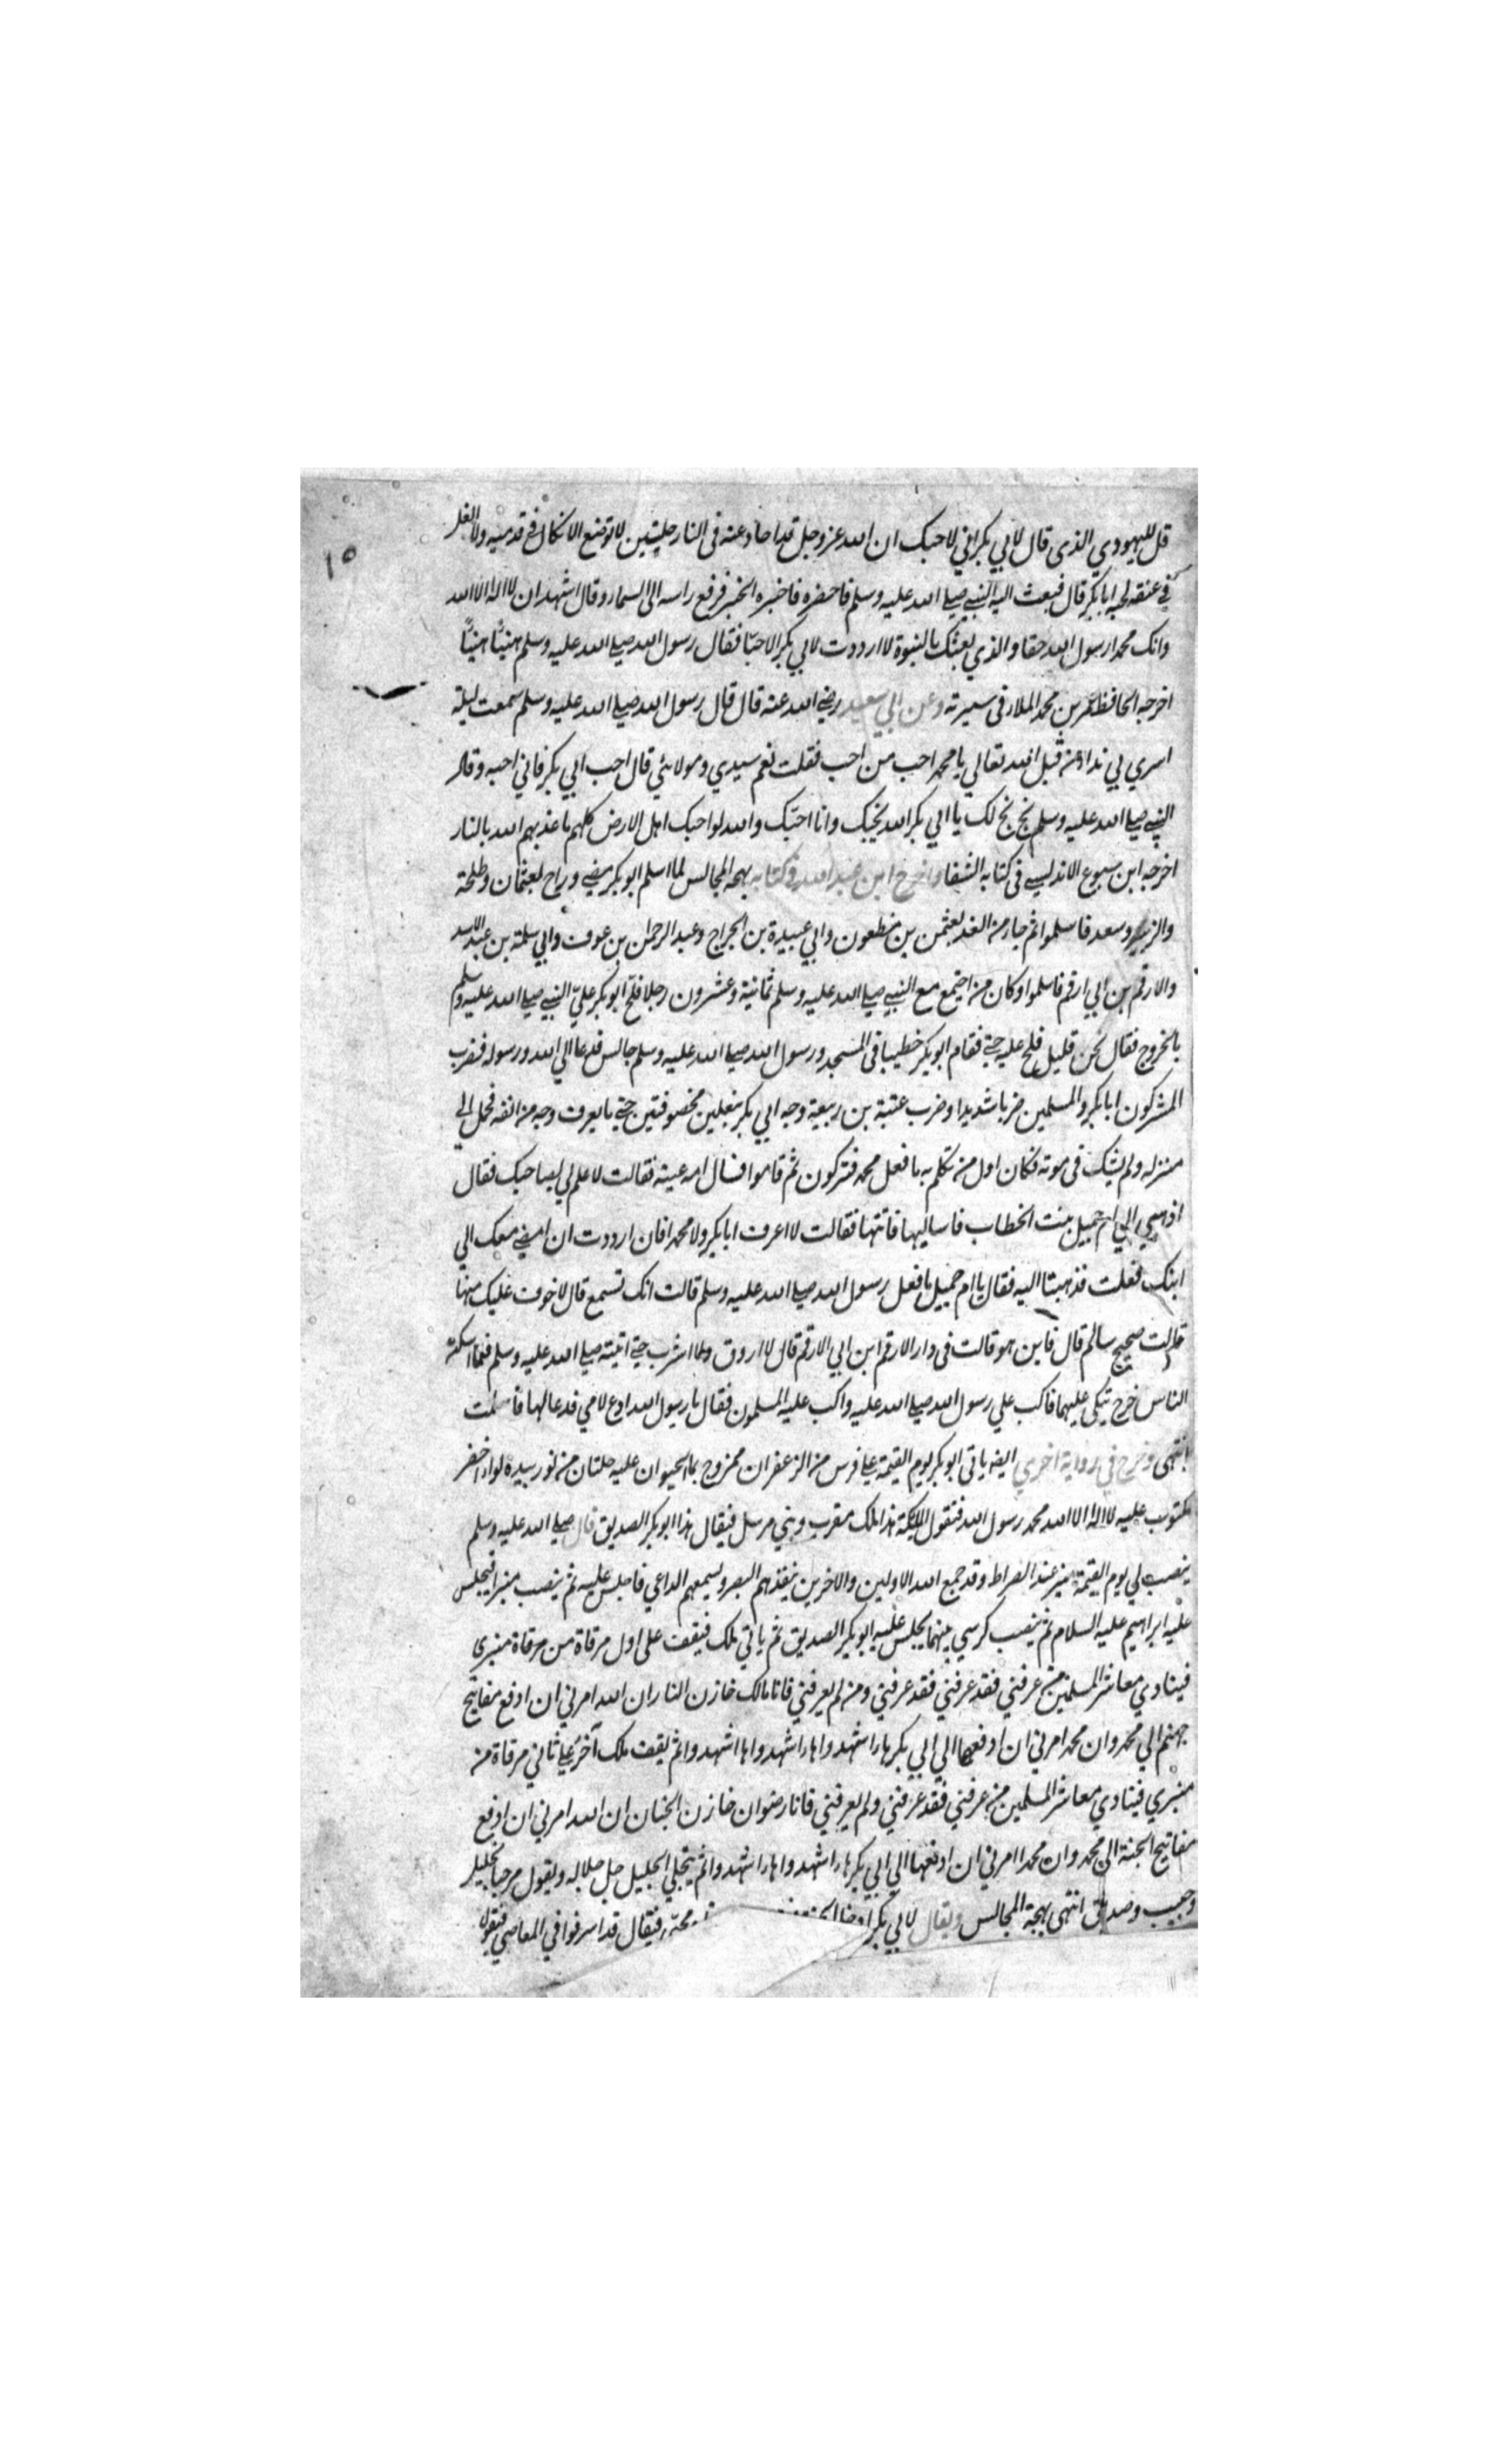 ١٥
قل لليهودي الذى قال لابي بكر اني لاحبك ان الله عز وجل قد احاد عنه فى النار خلتين لا توضع الانكال فى قدميه ولا الغل
في عنقه لحبه ابا بكر قال فبعث اليه النبي صلى الله عليه وسلم فاحضره فاخبره الخبر فرفع راسه الى السماء وقال اشهد ان لا اله الا الله
وانك محمدا رسول الله حقا والذي بعثك بالنبوة لا ازددت لابي بكر الا حبا فقال رسول الله صلى الله عليه وسلم هنيئا هنيئا
اخرجه الحافظ عمر بن محمد الملاء فى سيرته وعن ابي سعيد رضى الله عنه قال قال رسول الله صلى الله عليه وسلم سمعت ليلة
اسري بي نداء من قبل الله تعالي يا محمد احب من احب فقلت نعم سيدي ومولائي قال احب ابي بكر فاني احبه وقال
النبي صلى الله عليه وسلم بخ بخ لك يا ابي بكر الله يحبك وانا احبك والله لو احبك اهل الارض كلهم ما عذبهم الله بالنار
اخرجه ابن سبوع الاندلسي فى كتابه الشفا واخرج ابن عبد الله فى كتابه بهجة المجالس لما اسلم ابو بكر مضى وراح لعثمان وطلحة
والزبير وسعد فاسلموا ثم جاء من الغد بعثمن بن مظعون وابي عبيدة بن الجراح وعبد الرحمن بن عوف وابي سلمة بن عبد الاسد
والارقم بن ابي ارقم فاسلموا وكان من اجتمع مع النبي صلى الله عليه وسلم ثمانية وعشرون رجلا فلح ابو بكر علي النبي صلى الله عليه وسلم
بالخروج فقال نحن قليل فلح عليه حتى فقام ابو بكر خطيبا فى المسجد ورسول الله صلى الله عليه وسلم جالس فدعا الي الله ورسوله فضرب
المشركون ابا بكر والمسلمين ضربا شديدا وضرب عتبة بن ربيعة وجه ابي بكر بنعلين مخصوفتين حتى ما يعرف وجه من انفه فحمل الى
منزله ولم يشك فى موته فكان اول من تكلم به ما فعل محمد فتركون ثم قاموا فسال امه عينه فقالت لا علم لي بصاحبك فقال
اذهبي الي ام جميل بنت الخطاب فاساليها فاتتها فقالت لا اعرف ابا بكر ولا محمدا فان اردت ان امضى معك الي
ابنك فعلت فذهبتا اليه فقال يا ام جميل ما فعل رسول الله صلى الله عليه وسلم قالت انك تسمع قال لا خوف عليك منها
قالت صحيح سالم قال فاين هو قالت فى دار الارقم ابن ابي الارقم قال لا اروق ولما اشرب حتى اتيته صلى الله عليه وسلم فلما اسكنة
الناس خرج تيكى عليهما فاكب علي رسول الله صلى الله عليه واكب عليه المسلمون فقال يا رسول الله ادع لامي فدعا لها فاسلمت
انتهى وخرج في رواية اخري ايضه ياتى ابو بكر يوم القيمة على فرس من الزعفران ممزوج بماء الحيوان عليه حلتان من نور بيده لواء اخضر
مكتوب عليه لا اله الا الله محمد رسول الله فتقول الملئكة هذا ملك مقرب ونبي مرسل فيقال هذا ابو بكر الصديق قال صلى الله عليه وسلم
ينصب لي يوم القيمة منبر عند الصراط وقد جمع الله الاولين والاخرين ينفذهم البصر ويسمعهم الداعي فاجلس عليه ثم ينصب منبرا فيجلس
عليه ابراهيم عليه السلام ثم ينصب كرسي بينهما يجلس عليه ابو بكر الصديق ثم ياتي ملك فيقف على اول مرقاة من مرقاة منبرى
فينادي معاشر المسلمين من عرفني فقد عرفني فقد عرفني ومن لم يعرفني فانا مالك خازن النار ان الله امرني ان ادفع مفاتيح
جهنم الي محمد وان محمد امرني ان ادفعها الي ابي بكر هاء اشهدوا هاء اشهدوا ها اشهدوا ثم يقف ملك آخر على ثاني مرقاة من
منبري فينادي معاشر المسلمين من عرفني فقد عرفني ولم يعرفني فانا رضوان خازن الجنان ان الله امرني ان ادفع
مفاتيح الجنة الى محمد وان محمدا امرني ان ادفعها الي ابي بكر هاء اشهدوا هاء اشهدوا ثم يتجلي الجليل جل جلاله ويقول مرحبا بخليل
وحبيب وصديق انتهى بهجة المجالس ويقال لابي بكر محبه فيقال قد اسرفوا في المعاصي فيقول